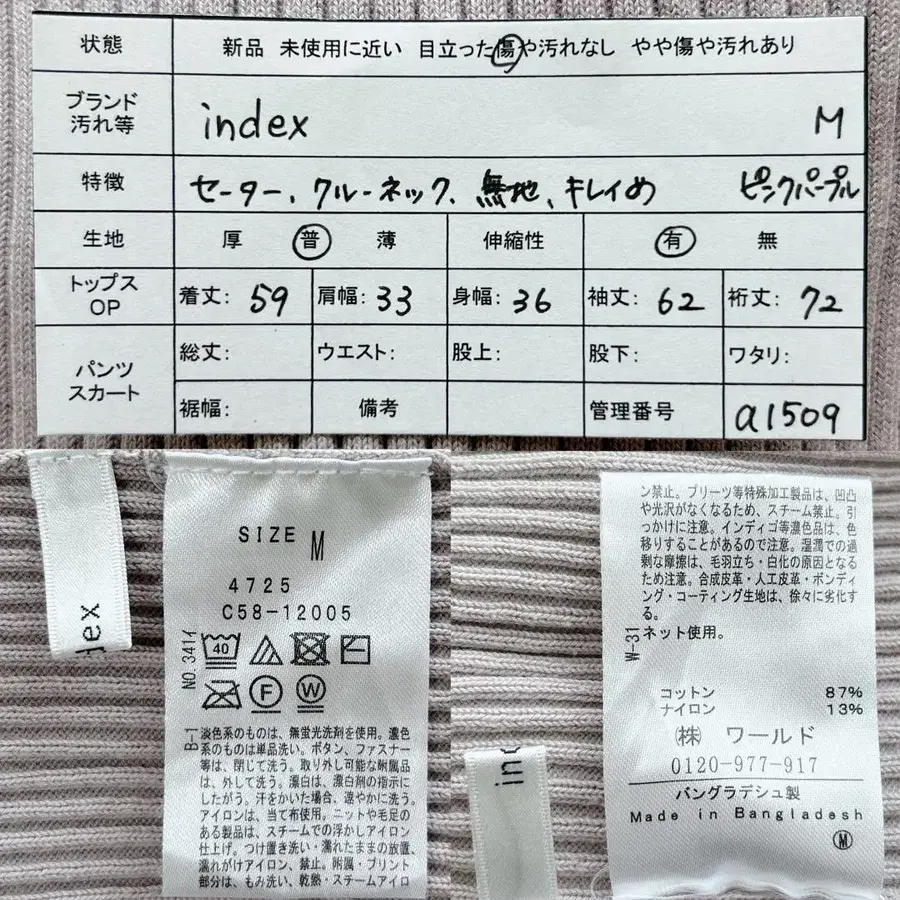 状態 新品 未使用に近い 目立った傷や汚れなし やや傷や汚れあり
ブランド
汚れ等 index M
特徴 セーター、クルーネック、無地、キレイめ ピンクパープル
生地 厚 普 薄 伸縮性 有 無
トップス
OP 着丈: 59 肩幅: 33 身幅: 36 袖丈: 62 裄丈: 72
パンツ
スカート 総丈: ウエスト: 股上: 股下: ワタリ:
裾幅: 備考 管理番号 a1509
index
SIZE M
4725
C58-12005
NO.3411
40
F W
B-1
淡色系のものは、無蛍光洗剤を使用。濃色
系のものは単品洗い。ボタン、ファスナー
等は、閉じて洗う。取り外し可能な附属品
は、外して洗う。漂白は、漂白剤の指示に
したがう。汗をかいた場合、速やかに洗う。
アイロンは、当て布使用。ニットや毛足の
ある製品は、スチームでの浮かしアイロン
仕上げ。つけ置き洗い・濡れたままの放置、
濡れがけアイロン、禁止。附属・プリント
部分は、もみ洗い、乾熱・スチームアイロ
ン禁止。プリーツ等特殊加工製品は、凹凸
や光沢がなくなるため、スチーム禁止。引
っかけに注意。インディゴ等濃色品は、色
移りすることがあるので注意。湿潤での過
剰な摩擦は、毛羽立ち・白化の原因となる
ため注意。合成皮革・人工皮革・ボンディ
ング・コーティング生地は、徐々に劣化す
る。
W-31
ネット使用。
コットン 87%
ナイロン 13%
(株) ワールド
0120-977-917
バングラデシュ製
Made in Bangladesh
M